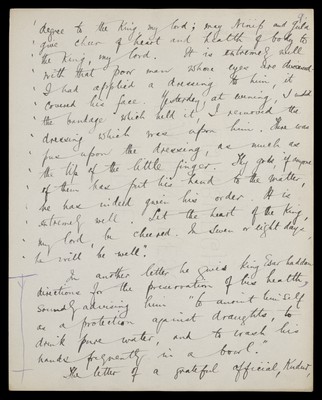 degree to the King my lord; may Ninib and Gula
give cheer of heart and health of body to
the King, my lord. It is extremely well
with that poor man whose eyes are diseased.
I had applied a dressing to him, it
covered his face. Yesterday, at evening, I undid
the bandage which held it, I removed the
dressing which was upon him. There was
pus upon the dressing, as much as
the tip of the little finger. Thy gods, if anyone
of them has put his hand to the matter,
he has indeed given his order. It is
extremely well. Let the heart of the King,
my lord, be cheered. In seven or eight days
he will be well."
In another letter he gives King Esar-haddon
directions for the preservation of his health,
soundly advising him "to anoint himself
as a protection against draughts, to
drink pure water, and to wash his
hands frequently in a bowl."
The letter of a grateful official,